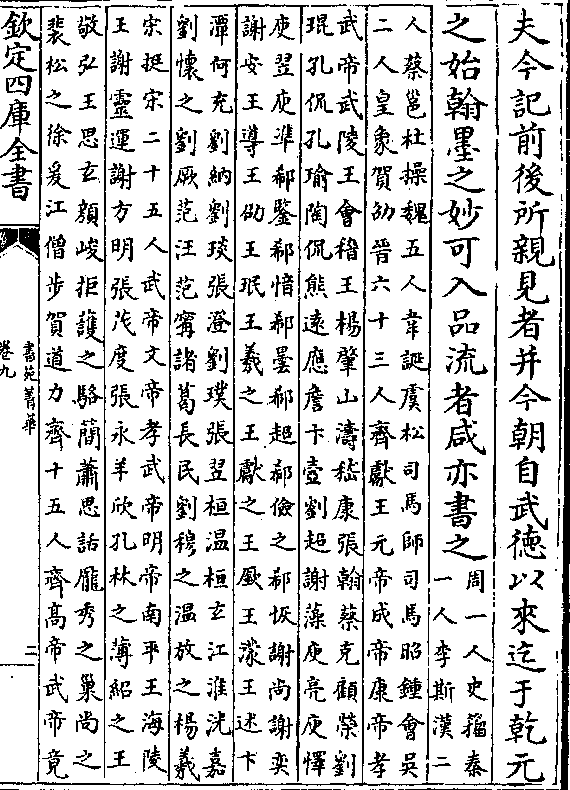 夫今記前後所親見者并今朝自武德以來迄于乾元
之始翰墨之妙可入品流者咸亦書之
周一人史籀秦
一人李斯漢二
人蔡邕杜操魏五人韋誕虞松司馬師司馬昭鍾會吳
二人皇象賀劭晉六十三人齊獻王元帝成帝康帝孝
武帝武陵王會稽王楊肇山濤嵇康張翰蔡克顧榮劉
琨孔侃孔瑜陶侃熊遠應詹卞壺劉超謝藻庾亮庾懌
庾翌庾準郗鑒郗愔郗曇郗超郗儉之郗恢謝尚謝奕
謝安王導王劭王珉王羲之王獻之王厥王濛王述卞
潭何充劉納劉琰張澄劉璞張翌桓温桓玄江淮沈嘉
劉懷之劉厥范汪范甯諸葛長民劉穆之温放之楊羲
宋挺宋二十五人武帝文帝孝武帝明帝南平王海陵
王謝靈運謝方明張茂度張永羊欣孔林之薄紹之王
敬弘王思玄顏峻拒護之駱蕳蕭思話龐秀之巢尚之
裴松之徐爰江僧步賀道力齊十五人齊高帝武帝竟
欽定四庫全書
書苑菁華
卷九
二